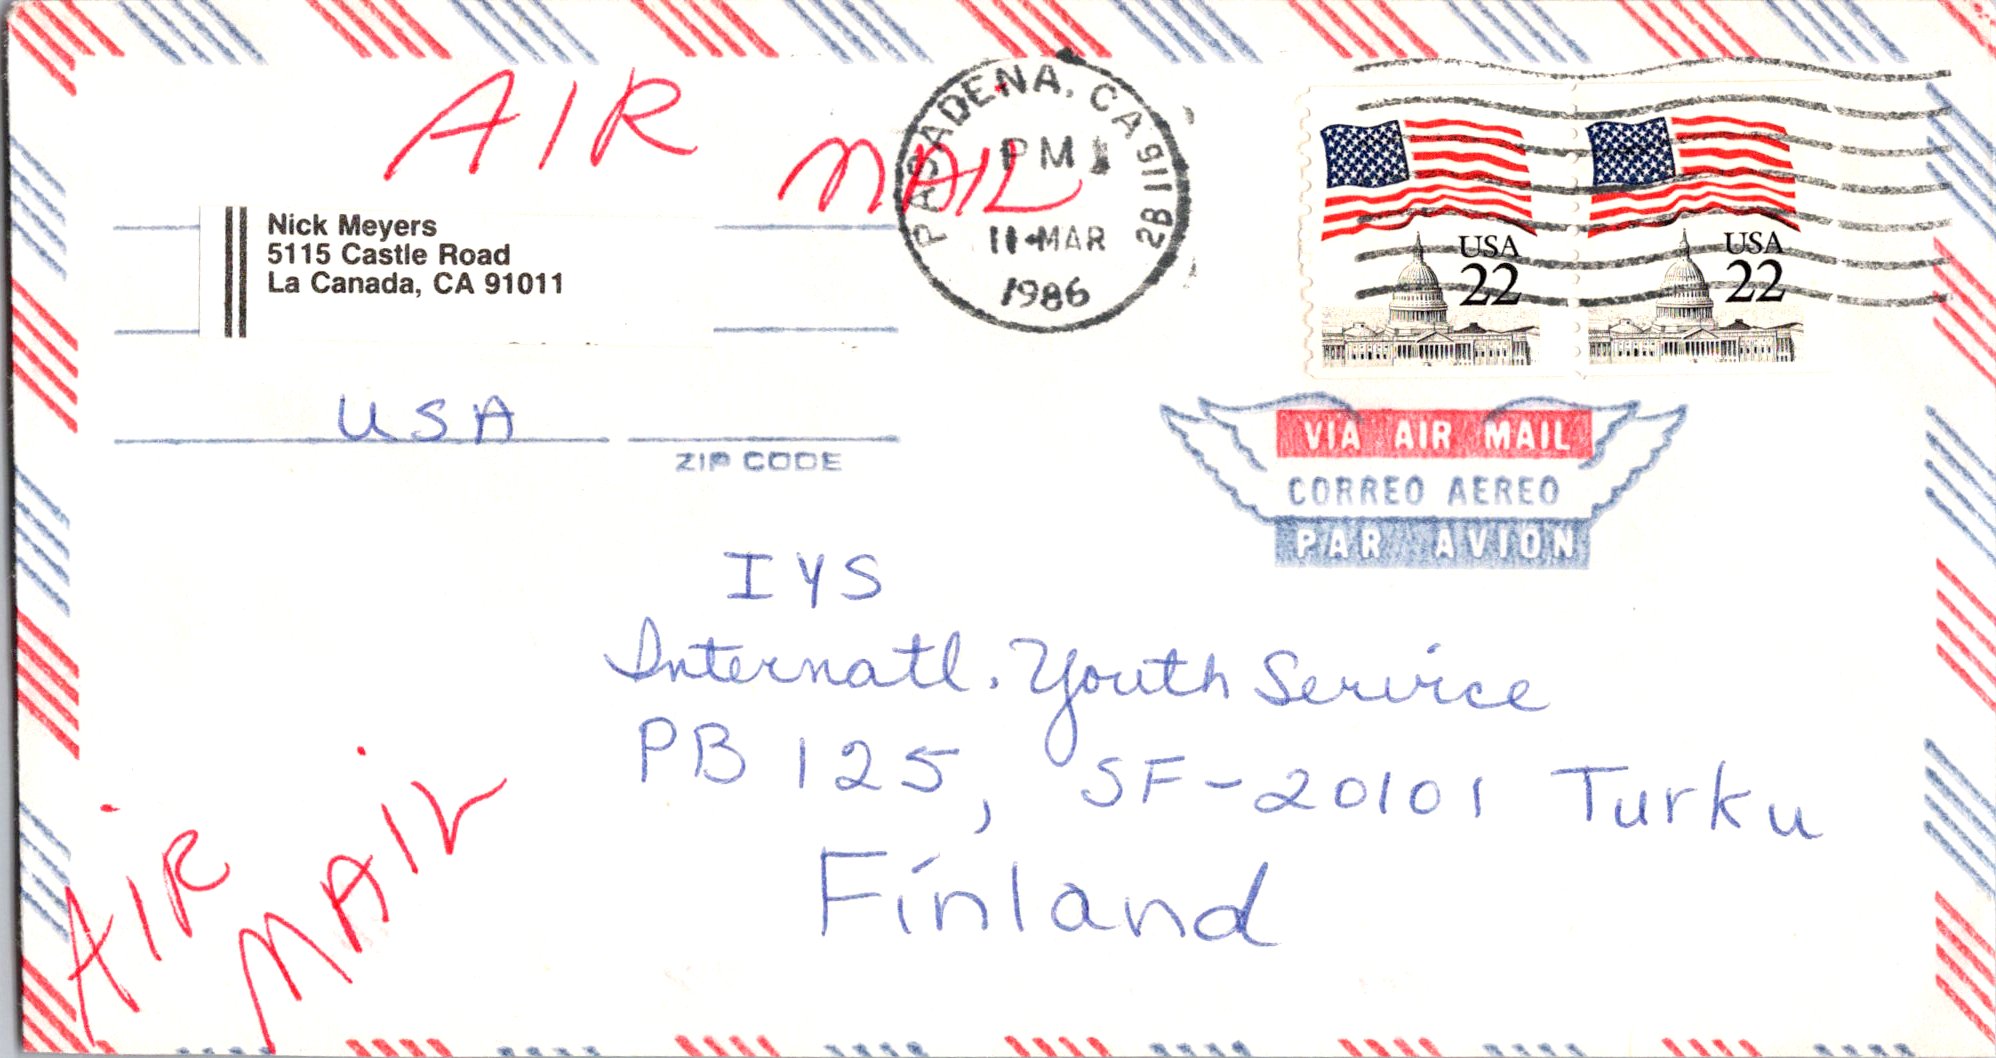 AIR MAIL
Nick Meyers
5115 Castle Road
La Canada, CA 91011
USA
ZIP CODE
PASADENA, CA 911
PM
11 MAR
1986
USA
22
USA
22
VIA AIR MAIL
CORREO AEREO
PAR AVION
IYS
Internatl. Youth Service
PB 125, SF-20101 Turku
Finland
AIR
MAIL